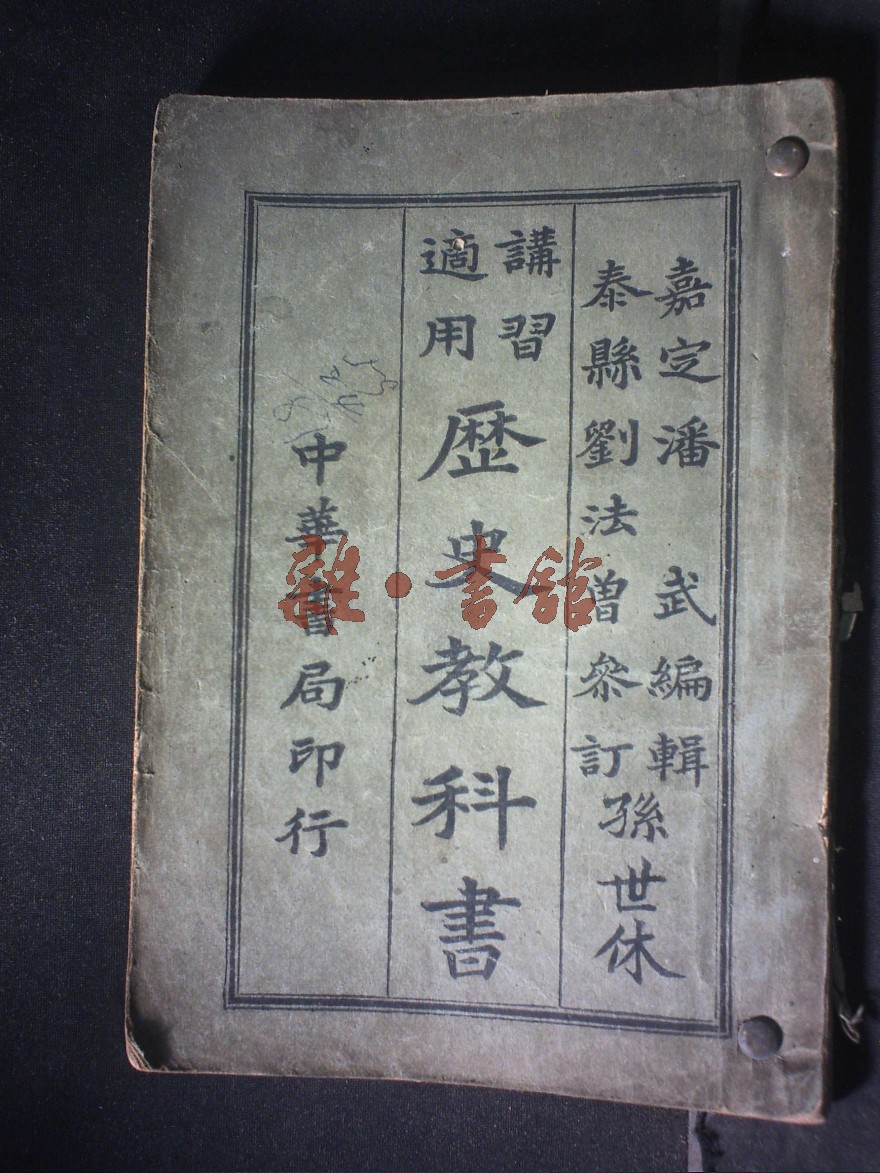 嘉定潘武編輯
泰縣劉法曾參訂
孫世休
講習
適用
歷史教科書
中華書局印行
雜·書館